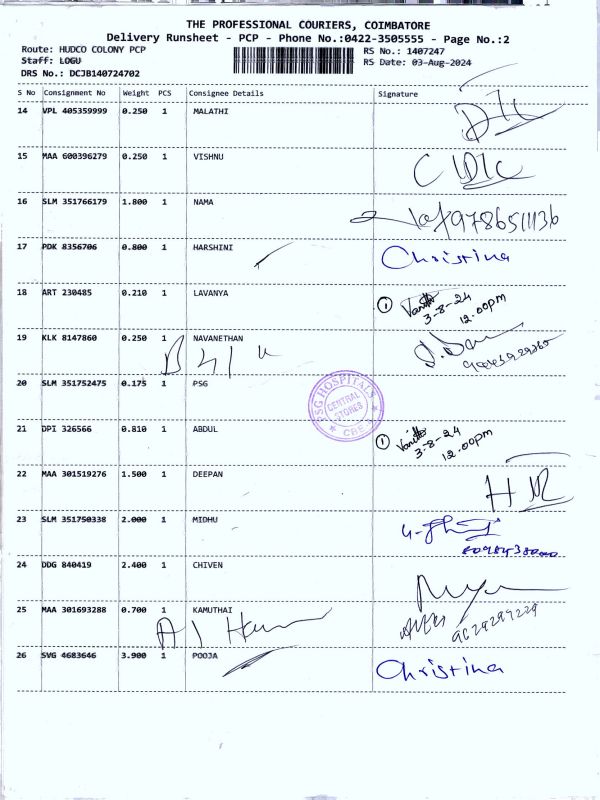 THE PROFESSIONAL COURIERS, COIMBATORE
Delivery Runsheet - PCP - Phone No.:0422-3505555 - Page No.:2
Route: HUDCO COLONY PCP RS No.: 1407247
Staff: LOGU RS Date: 03-Aug-2024
DRS No.: DCJB140724702
S No Consignment No Weight PCS Consignee Details Signature
14 VPL 405359999 0.250 1 MALATHI
15 MAA 600396279 0.250 1 VISHNU
16 SLM 351766179 1.800 1 NAMA
17 PDK 8356706 0.800 1 HARSHINI Christina
18 ART 230485 0.210 1 LAVANYA 1
3-8-24
12.00pm
19 KLK 8147860 0.250 1 NAVANETHAN
20 SLM 351752475 0.175 1 PSG
PSG HOSPITALS
CENTRAL
STORES
CBE
21 DPI 326566 0.810 1 ABDUL 1
3-8-24
12.00pm
22 MAA 301519276 1.500 1 DEEPAN
23 SLM 351750338 2.000 1 MIDHU
24 DDG 840419 2.400 1 CHIVEN
25 MAA 301693288 0.700 1 KAMUTHAI
26 SVG 4683646 3.900 1 POOJA Christina